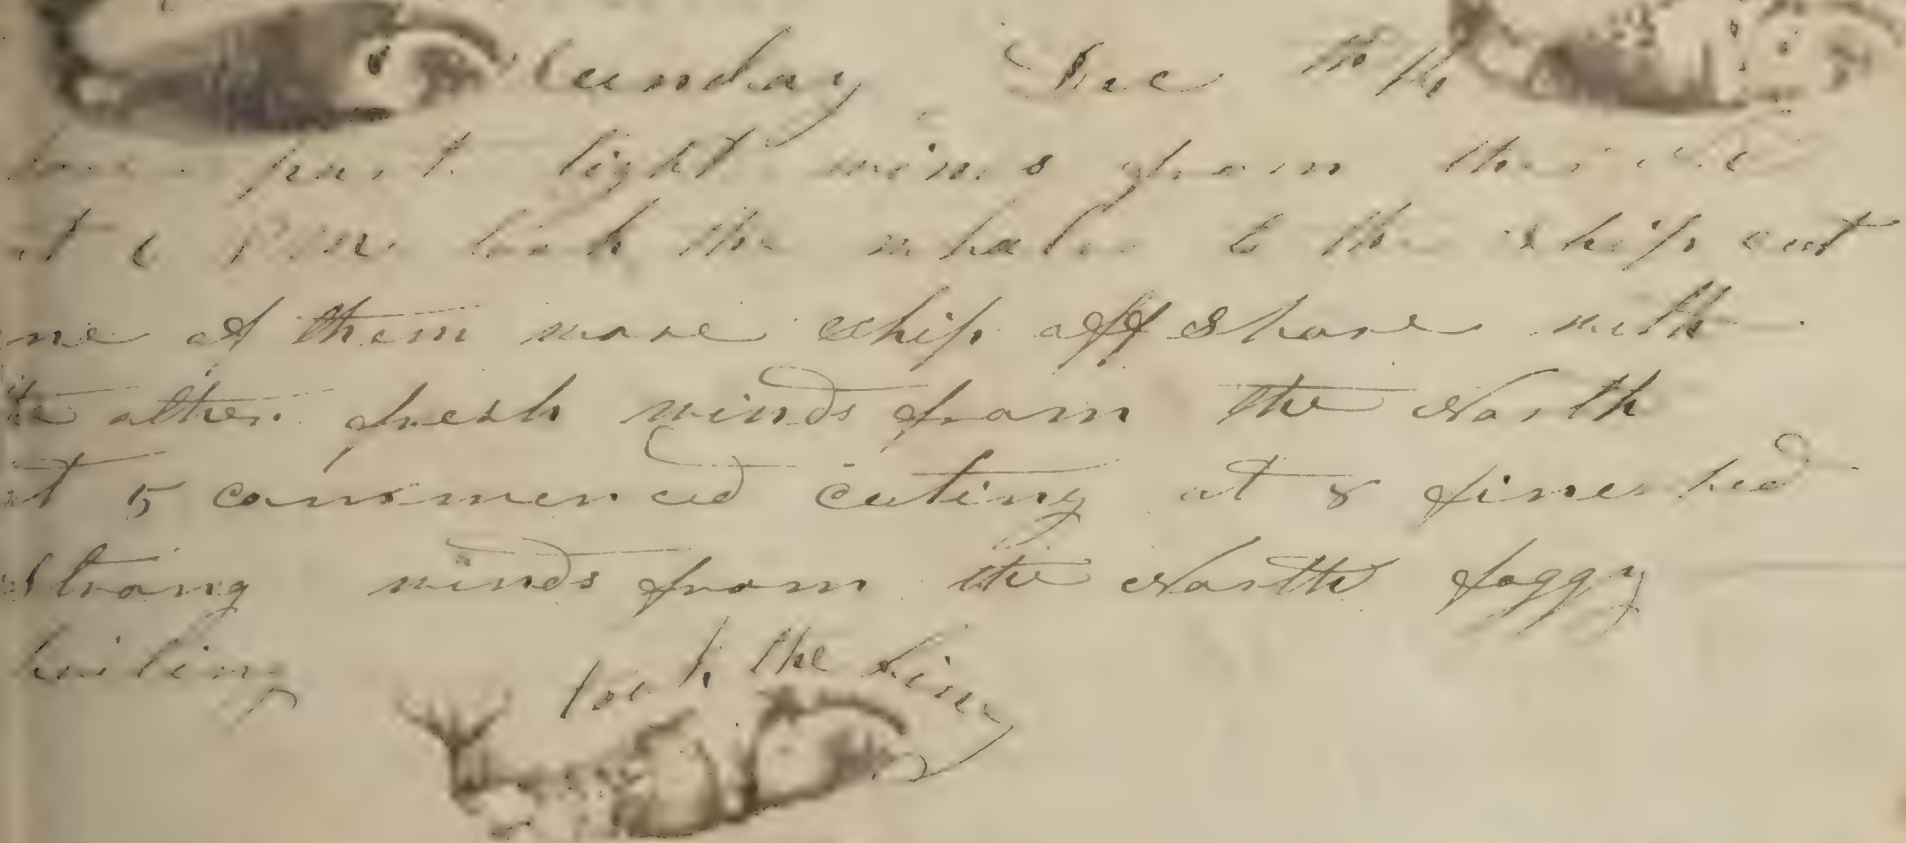 Sunday Dec
part light winds from the
at 6 PM took the whales to the ship cut
one of them wore ship off Shore with
the other fresh winds from the North
at 5 commenced cuting at 8 fineshed
Strong winds from the North foggy
boiling took the line